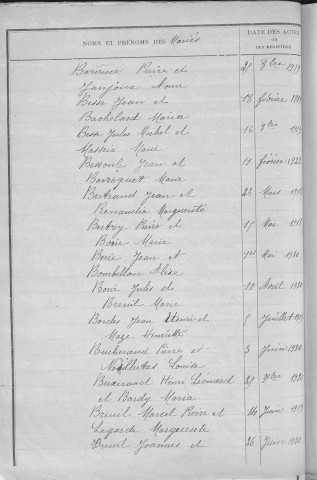 NOMS ET PRÉNOMS DES Mariés
DATE DES ACTES
OU
DES REGISTRES
Pierre et 25 9bre 1919
Anne
Besse Jean et 18 février 1920
Bachelard Maria
Besse Jules Michel et 16 9bre 1919
Massia Marie
Bessoule Jean et 14 février 1922
Marie
Bertrand Jean et 22 Mars
Marguerite
Pierre et 15 Mai
Borie Marie
Borie Jean et 1er Mai 1920
Bombillon Alise
Borie Jules et 10 Avril 1920
Breuil Marie
Bordes Jean Henri et 5 Juillet
Maze Henriette
Pierre et 3 Juin 1920
Louise
Henri Léonard 25 9bre 1920
et Bardy Maria
Breuil Marcel Pierre et 14 Juin 1919
Lagarde Marguerite
Breuil Joannès et 26 Juin 1920